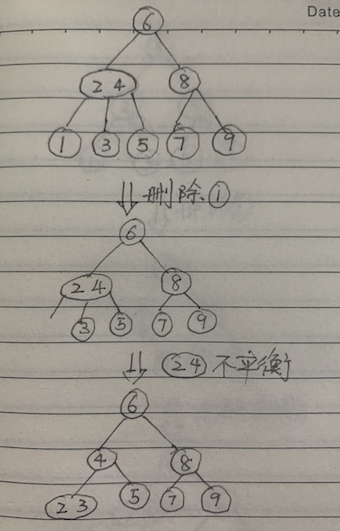 Date
6
2 4 8
1 3 5 7 9
删除①
6
2 4 8
3 5 7 9
2 4 不平衡
6
4 8
2 3 5 7 9